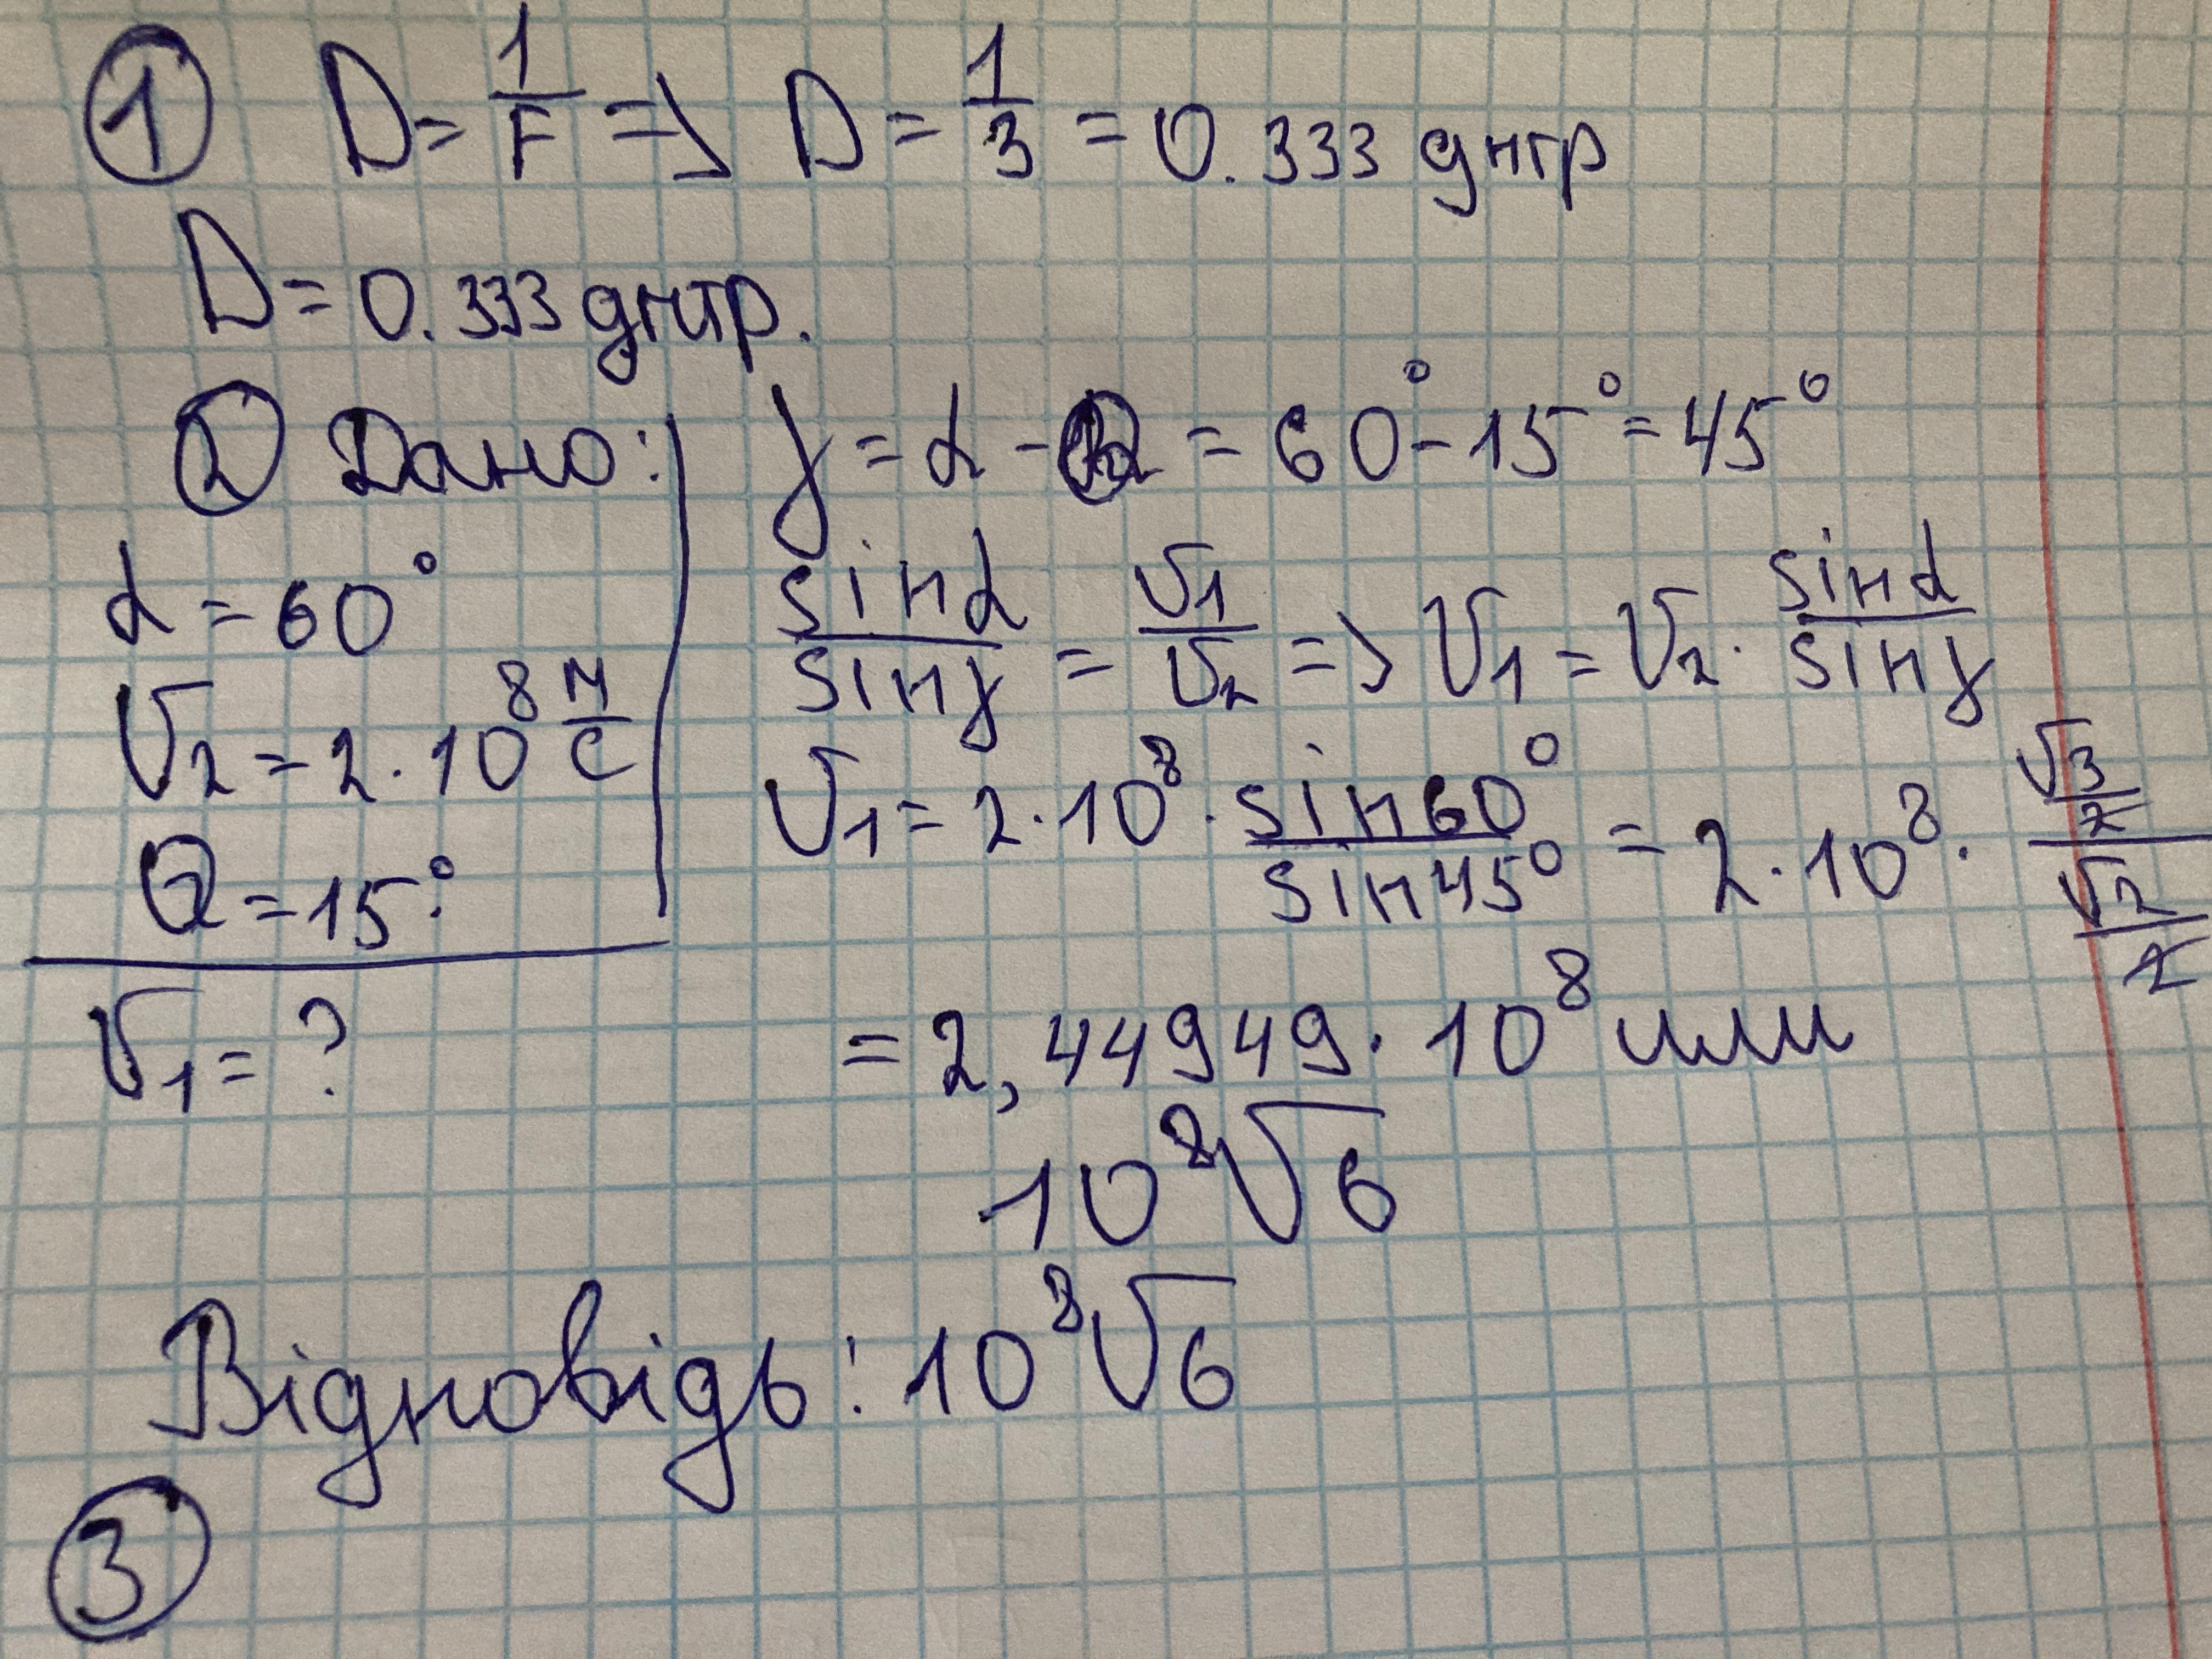 1 D = 1/F => D = 1/3 = 0.333 дптр
D = 0.333 дптр.
2 Дано:
α = 60°
V₂ = 2 · 10⁸ м/с
Q = 15°.
V₁ = ?
γ = α - Q = 60° - 15° = 45°
sin α / sin γ = V₁ / V₂ => V₁ = V₂ · sin α / sin γ
V₁ = 2 · 10⁸ · sin 60° / sin 45° = 2 · 10⁸ · (√3/2) / (√2/2)
= 2,44949 · 10⁸ или
10⁸√6
Відповідь: 10⁸√6
3